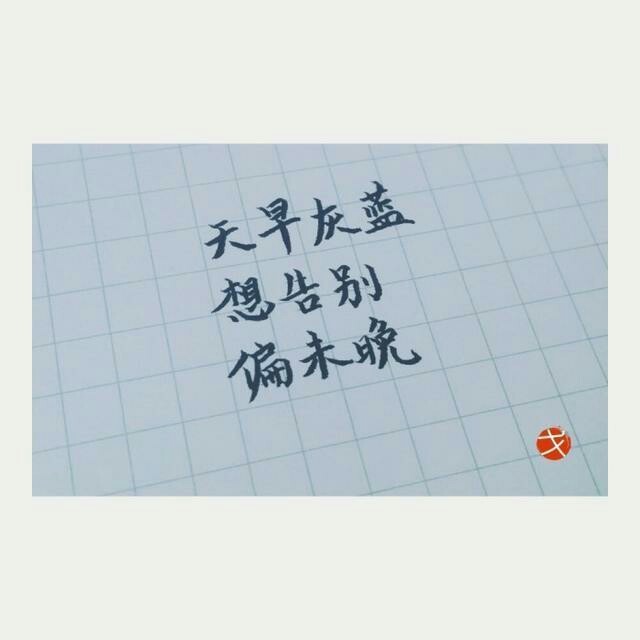 天早灰蓝
想告别
偏未晚
戈